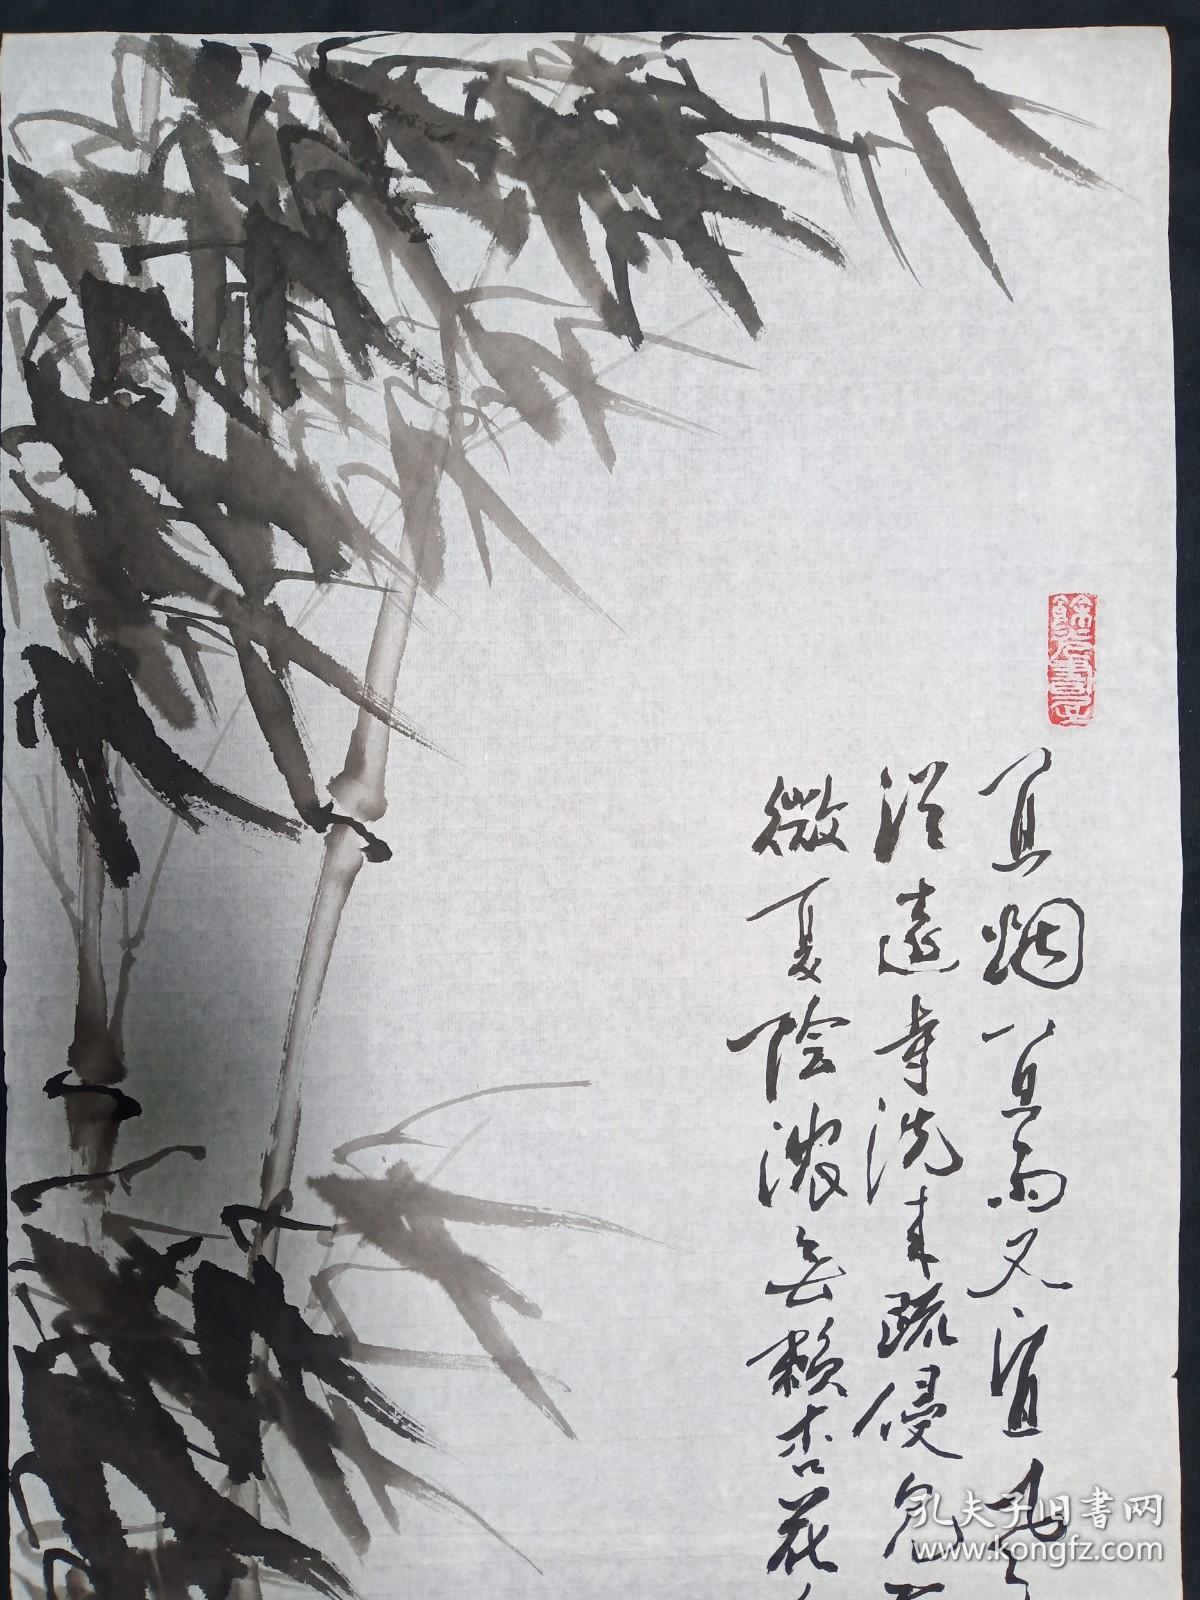 宜烟宜雨又宜风
从远寺洗来疏侵色
微夏阴浓无赖杏花
孔夫子旧书网
www.kongfz.com